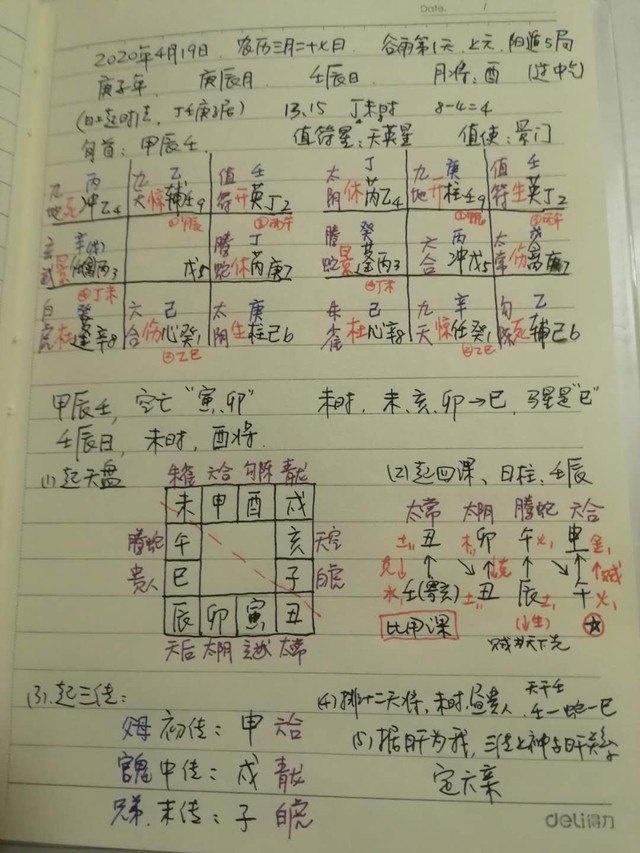 Date. /
2020年4月19日 农历三月二十七日 谷雨第1天,上元,阳遁5局
庚子年, 庚辰月 壬辰日 月将:酉 (过中气)
(日上起时法, 丁壬庚子居) 13.15 丁未时 8-4=4
旬首:甲辰壬 值符星:天英星 值使:景门
九地 丙 死冲乙4 九天 乙 惊辅壬9 值符 壬 开英丁2
太阴 丁 休芮乙4 九地 庚 开柱壬9 值符 壬 生英丁2
玄武 辛 景 丙3 戊5 腾蛇 丁 休芮庚7
腾蛇 癸 景蓬丙3 六合 丙 冲戊5 太常 戊 伤 庚7
④丁未 ④丁未
白虎 癸 杜蓬辛8 六合 己 伤心癸1 太阴 庚 生柱己6
朱雀 己 杜心辛8 九天 辛 惊任癸1 勾陈 乙 死辅己6
③乙巳 ③乙巳
甲辰壬,空亡“寅,卯” 未时,未,亥,卯→巳,马星是“巳”
壬辰日,未时,酉将.
(1)起天盘 朱雀 六合 勾陈 青龙 (2)起四课、日柱,壬辰
未 申 酉 戌 太常 太阴 腾蛇 六合
腾蛇 午 亥 天空 土 丑 木 卯 午 火 申 金
克 克 贼
贵人 巳 子 白虎 水 壬(寄亥) 土 丑 辰 土 午 火
辰 卯 寅 丑 比用课 (生)
天后 太阴 玄武 太常 贼为天下克
(3).起三传: (4)排十二天将,未时,昼贵人,天干壬
壬—蛇—巳
父母 初传:申 六合 (5)据日干为我,三传上神与日干关系
官鬼 中传:戌 青龙 定六亲
兄弟.末传:子 白虎
deli得力